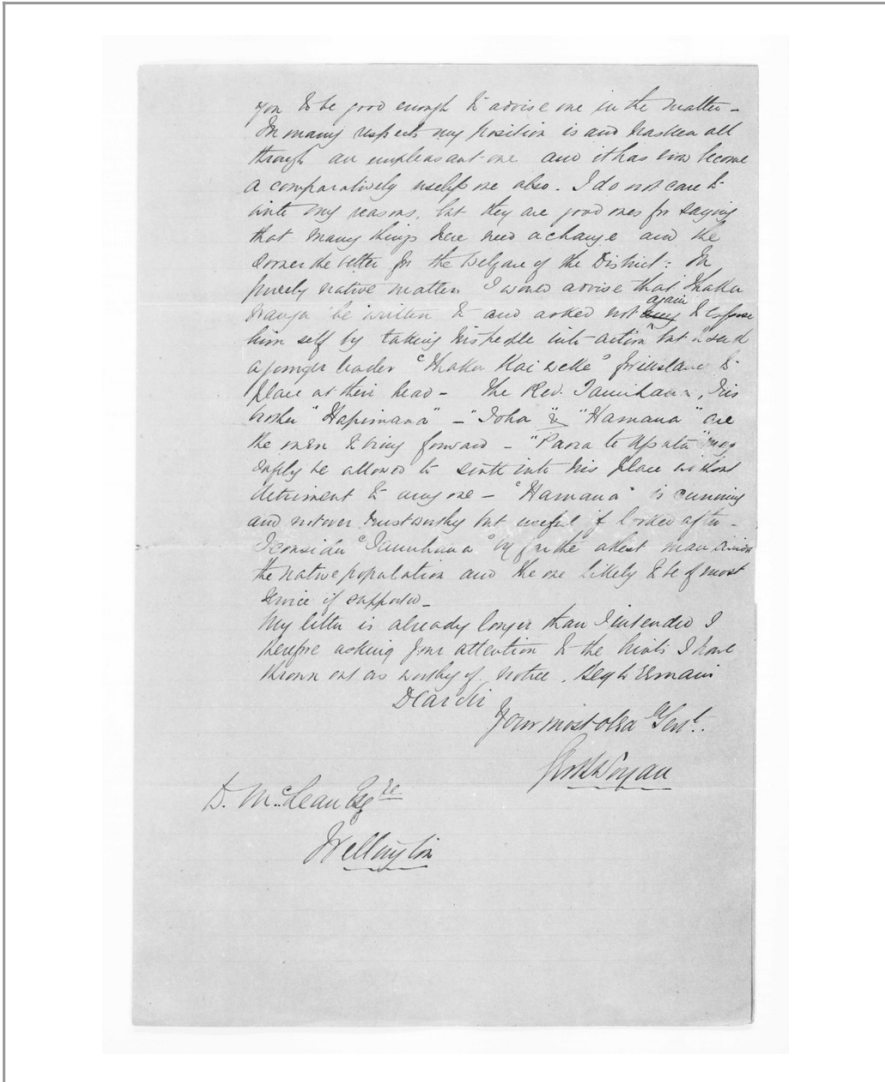 you to be good enough to advise me in the matter -
In many respects my position is and has been all
through an unpleasant one and it has now become
a comparatively useless one also. I do not care to
write my reasons, but they are good ones for saying
that many things here need a change and the
sooner the better for the welfare of the District: In
purely native matters I would advise that Ihaka
be written to and asked not again to expose
him self by taking his people into action but to send
a younger leader "Ihaka" for instance to
place at their head - The Rev. Tamihana, his
brother "Hapimana" - "Ioha" & "Hamana" are
the men to bring forward - "te" may
safely be allowed to sink into his place without
detriment to any one - "Hamana" is cunning
and not over trustworthy but useful if looked after -
I consider "Tamihana" by far the ablest man among
the native population and the one likely to be of most
service if supported -
My letter is already longer than I intended I
therefore asking your attention to the hints I have
thrown out as worthy of notice, beg to remain
Dear Sir
Your most obed Servt.
D. McLean Esqre
Wellington